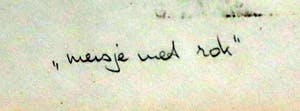 „meisje met rok"